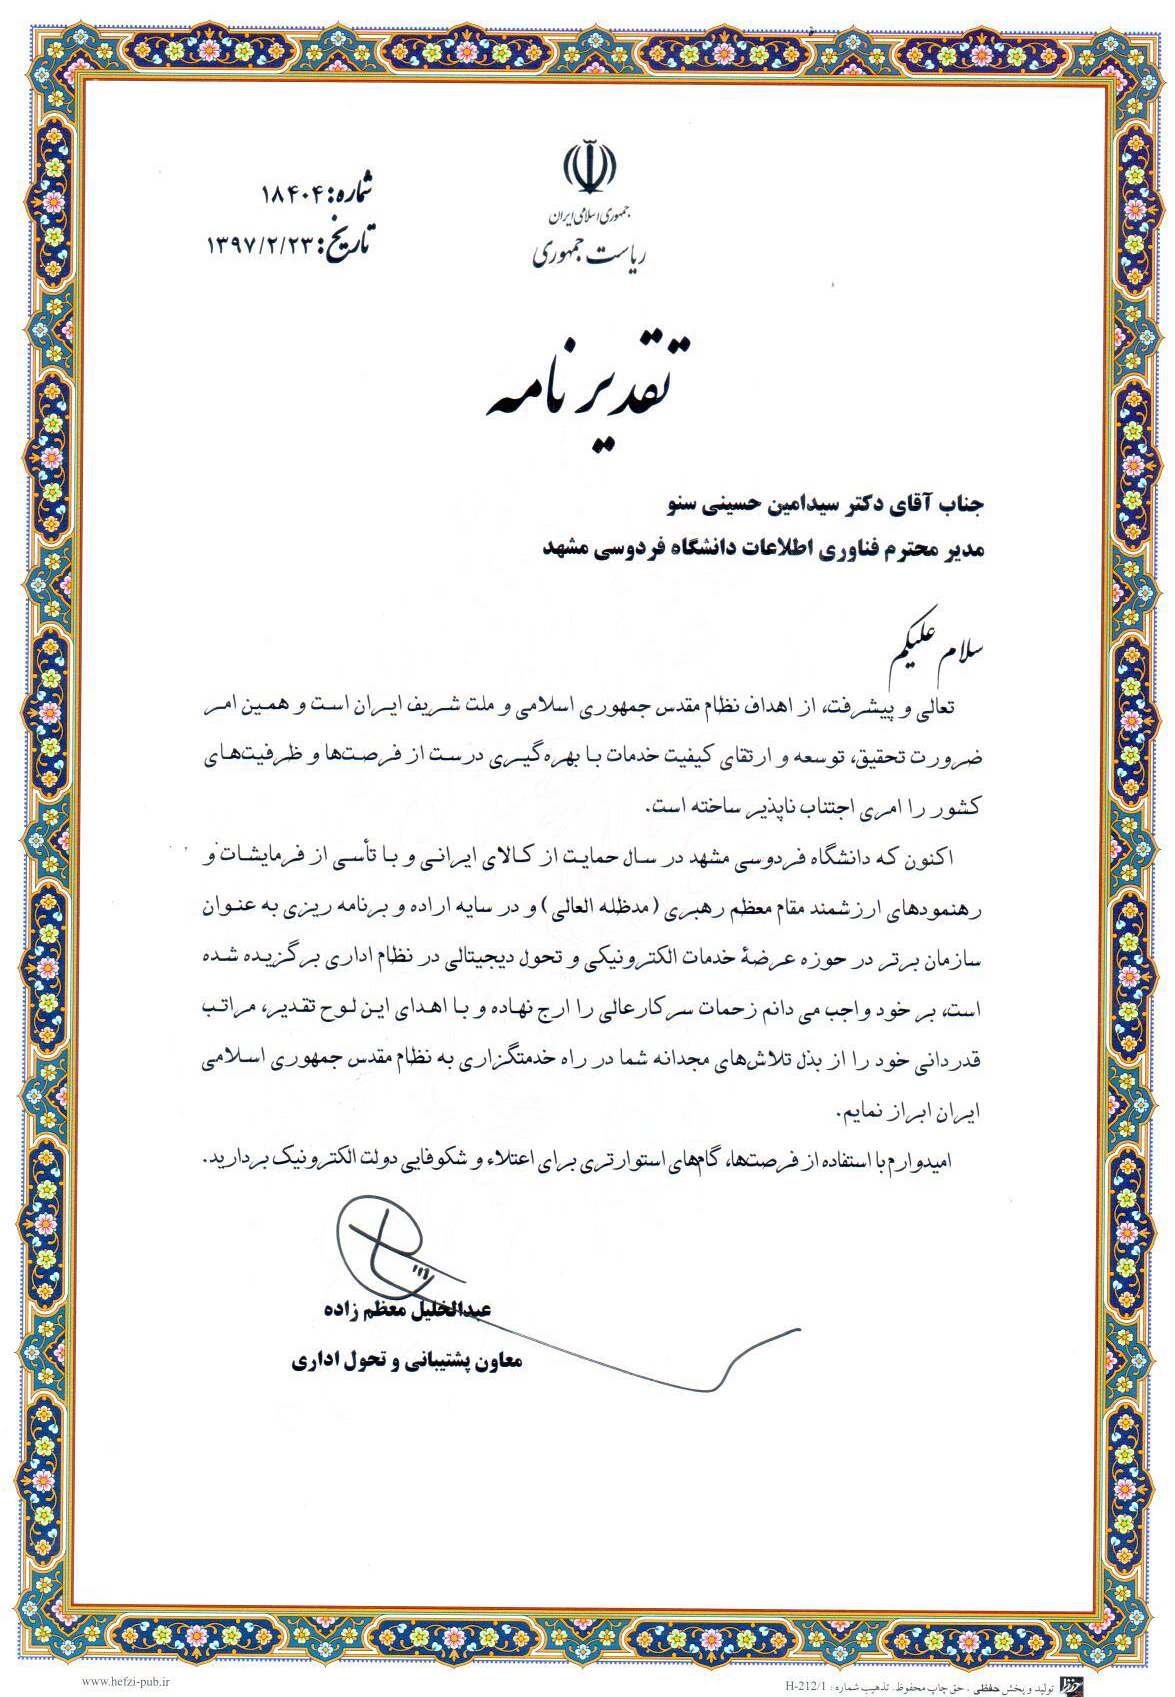 جمهوری اسلامی ایران
ریاست جمهوری
شماره: ۱۸۴۰۴
تاریخ: ۱۳۹۷/۲/۲۳
تقدیرنامه
جناب آقای دکتر سیدامین حسینی سنو
مدیر محترم فناوری اطلاعات دانشگاه فردوسی مشهد
سلام علیکم
تعالی و پیشرفت، از اهداف نظام مقدس جمهوری اسلامی و ملت شریف ایران است و همین امر
ضرورت تحقیق، توسعه و ارتقای کیفیت خدمات با بهره‌گیری درست از فرصت‌ها و ظرفیت‌های
کشور را امری اجتناب ناپذیر ساخته است.
اکنون که دانشگاه فردوسی مشهد در سال حمایت از کالای ایرانی و با تأسی از فرمایشات و
رهنمودهای ارزشمند مقام معظم رهبری (مدظله العالی) و در سایه اراده و برنامه ریزی به عنوان
سازمان برتر در حوزه عرضهٔ خدمات الکترونیکی و تحول دیجیتالی در نظام اداری برگزیده شده
است، بر خود واجب می دانم زحمات سرکارعالی را ارج نهاده و با اهدای این لوح تقدیر، مراتب
قدردانی خود را از بذل تلاش‌های مجدانه شما در راه خدمتگزاری به نظام مقدس جمهوری اسلامی
ایران ابراز نمایم.
امیدوارم با استفاده از فرصت‌ها، گام‌های استوارتری برای اعتلاء و شکوفایی دولت الکترونیک بردارید.
عبدالخلیل معظم زاده
معاون پشتیبانی و تحول اداری
تولید و پخش حفظی . حق چاپ محفوظ. تذهیب شماره : H-212/1
www.hefzi-pub.ir